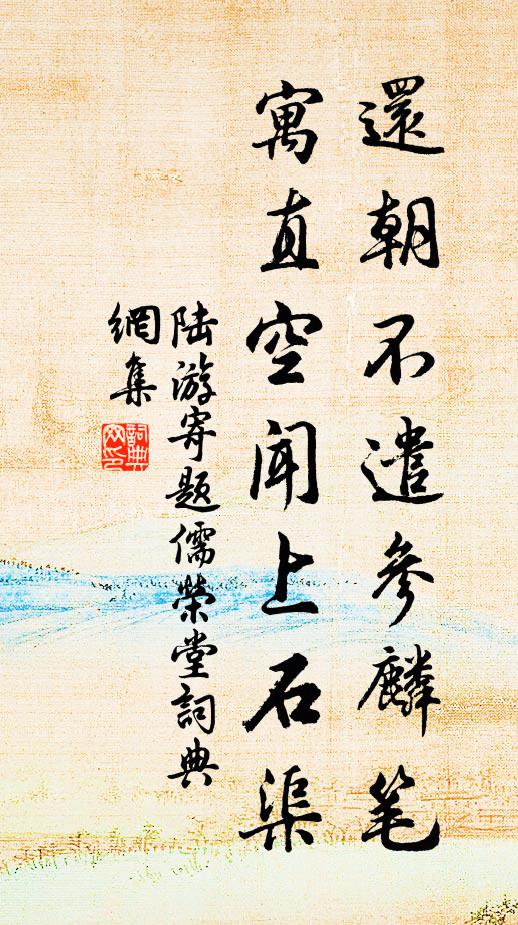 還朝不遣參麟笔
寓直空闻上石渠
陆游寄题儒荣堂詞典
網集